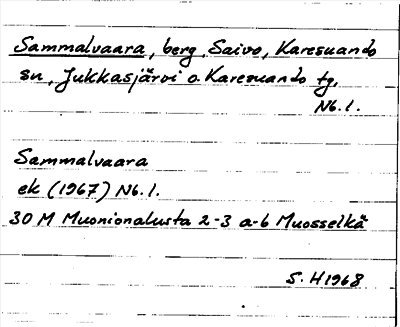 Sammalvaara, berg, Saivo, Karesuando
sn, Jukkasjärvi o. Karesuando tg,
Nb. l.
Sammalvaara
ek (1967) Nb. l.
30 M Muonionalusta 2-3 a-b Muosselkä
S. H 1968